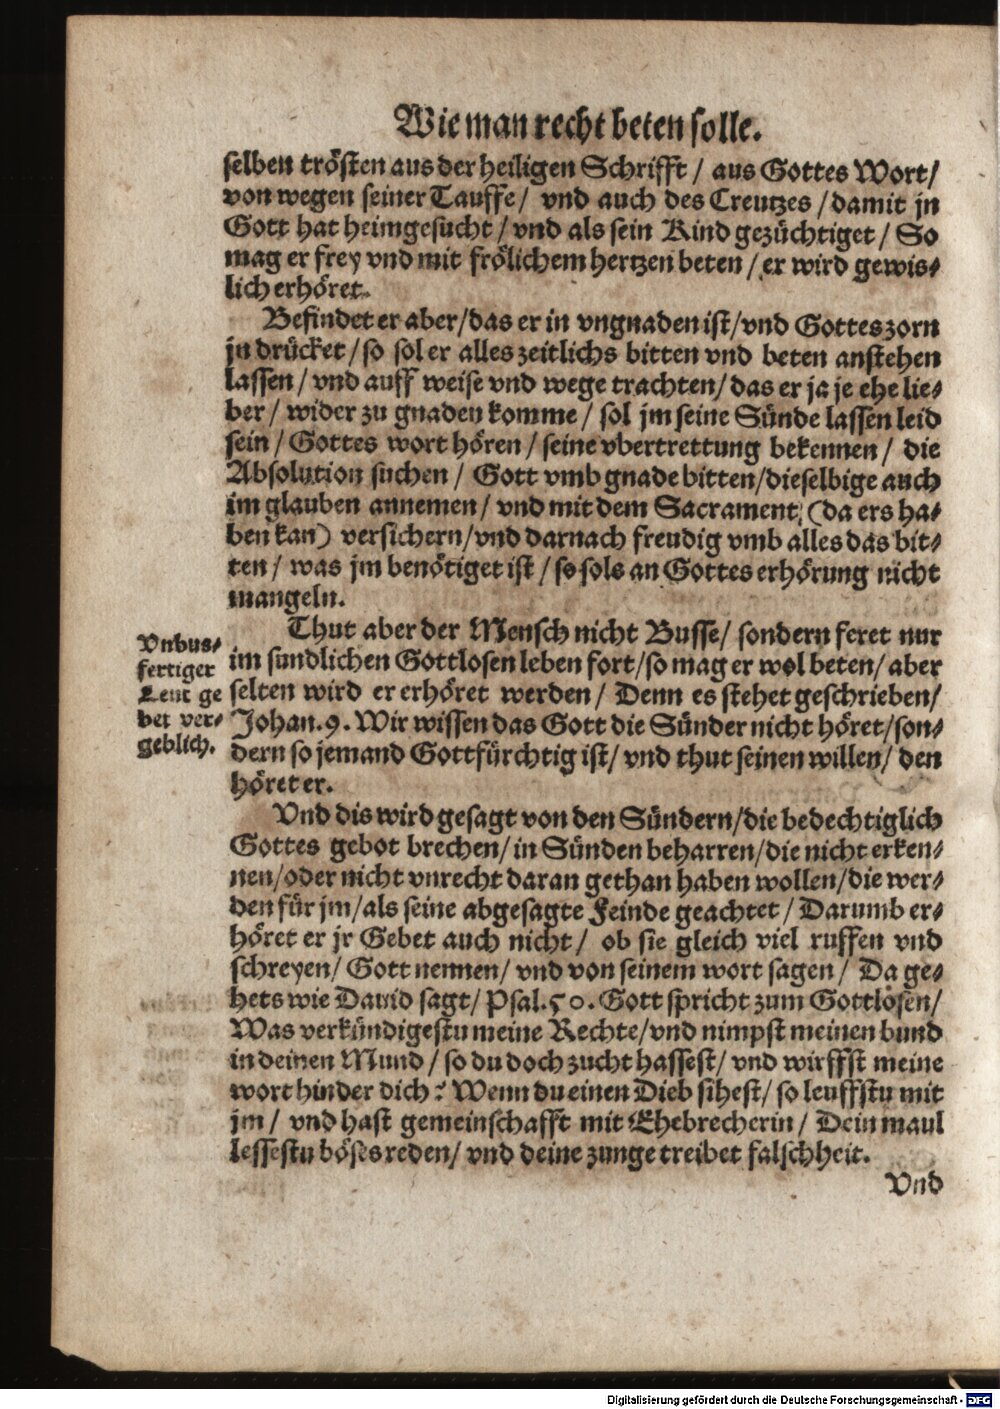 Wie man recht beten solle.
selben trösten aus der heiligen Schrifft / aus Gottes Wort/
von wegen seiner Tauffe / vnd auch des Creutzes / damit jn
Gott hat heimgesucht / vnd als sein Kind gezüchtiget / So
mag er frey vnd mit frölichem hertzen beten / er wird gewis-
lich erhöret.
Befindet er aber/das er in vngnaden ist/vnd Gottes zorn
jn drücket / so sol er alles zeitlichs bitten vnd beten anstehen
lassen / vnd auff weise vnd wege trachten/ das er ja je ehe lie-
ber / wider zu gnaden komme / sol jm seine Sünde lassen leid
sein / Gottes wort hören / seine vbertrettung bekennen / die
Absolution suchen / Gott vmb gnade bitten/dieselbige auch
im glauben annemen / vnd mit dem Sacrament, (da ers ha-
ben kan) versichern/vnd darnach freudig vmb alles das bit-
ten / was jm benötiget ist / so sols an Gottes erhörung nicht
mangeln.
Thut aber der Mensch nicht Busse/ sondern feret nur
im sundlichen Gottlosen leben fort/so mag er wol beten/ aber
selten wird er erhöret werden / Denn es stehet geschrieben/
Johan. 9. Wir wissen das Gott die Sünder nicht höret/son-
dern so jemand Gottfürchtig ist/ vnd thut seinen willen/ den
höret er.
Vnbus-
fertiger
Leut ge
bet ver-
geblich.
Vnd dis wird gesagt von den Sündern/die bedechtiglich
Gottes gebot brechen/ in Sünden beharren/die nicht erken-
nen/oder nicht vnrecht daran gethan haben wollen/die wer-
den für jm/als seine abgesagte Feinde geachtet / Darumb er-
höret er jr Gebet auch nicht / ob sie gleich viel ruffen vnd
schreyen/ Gott nennen/ vnd von seinem wort sagen / Da ge-
hets wie Dauid sagt/ Psal. 50. Gott spricht zum Gottlosen/
Was verkündigestu meine Rechte/vnd nimpst meinen bund
in deinen Mund / so du doch zucht hassest/ vnd wirffst meine
wort hinder dich? Wenn du einen Dieb sihest/ so leuffstu mit
jm / vnd hast gemeinschafft mit Ehebrecherin / Dein maul
lessestu böses reden/ vnd deine zunge treibet falschheit.
Vnd
Digitalisierung gefördert durch die Deutsche Forschungsgemeinschaft - DFG